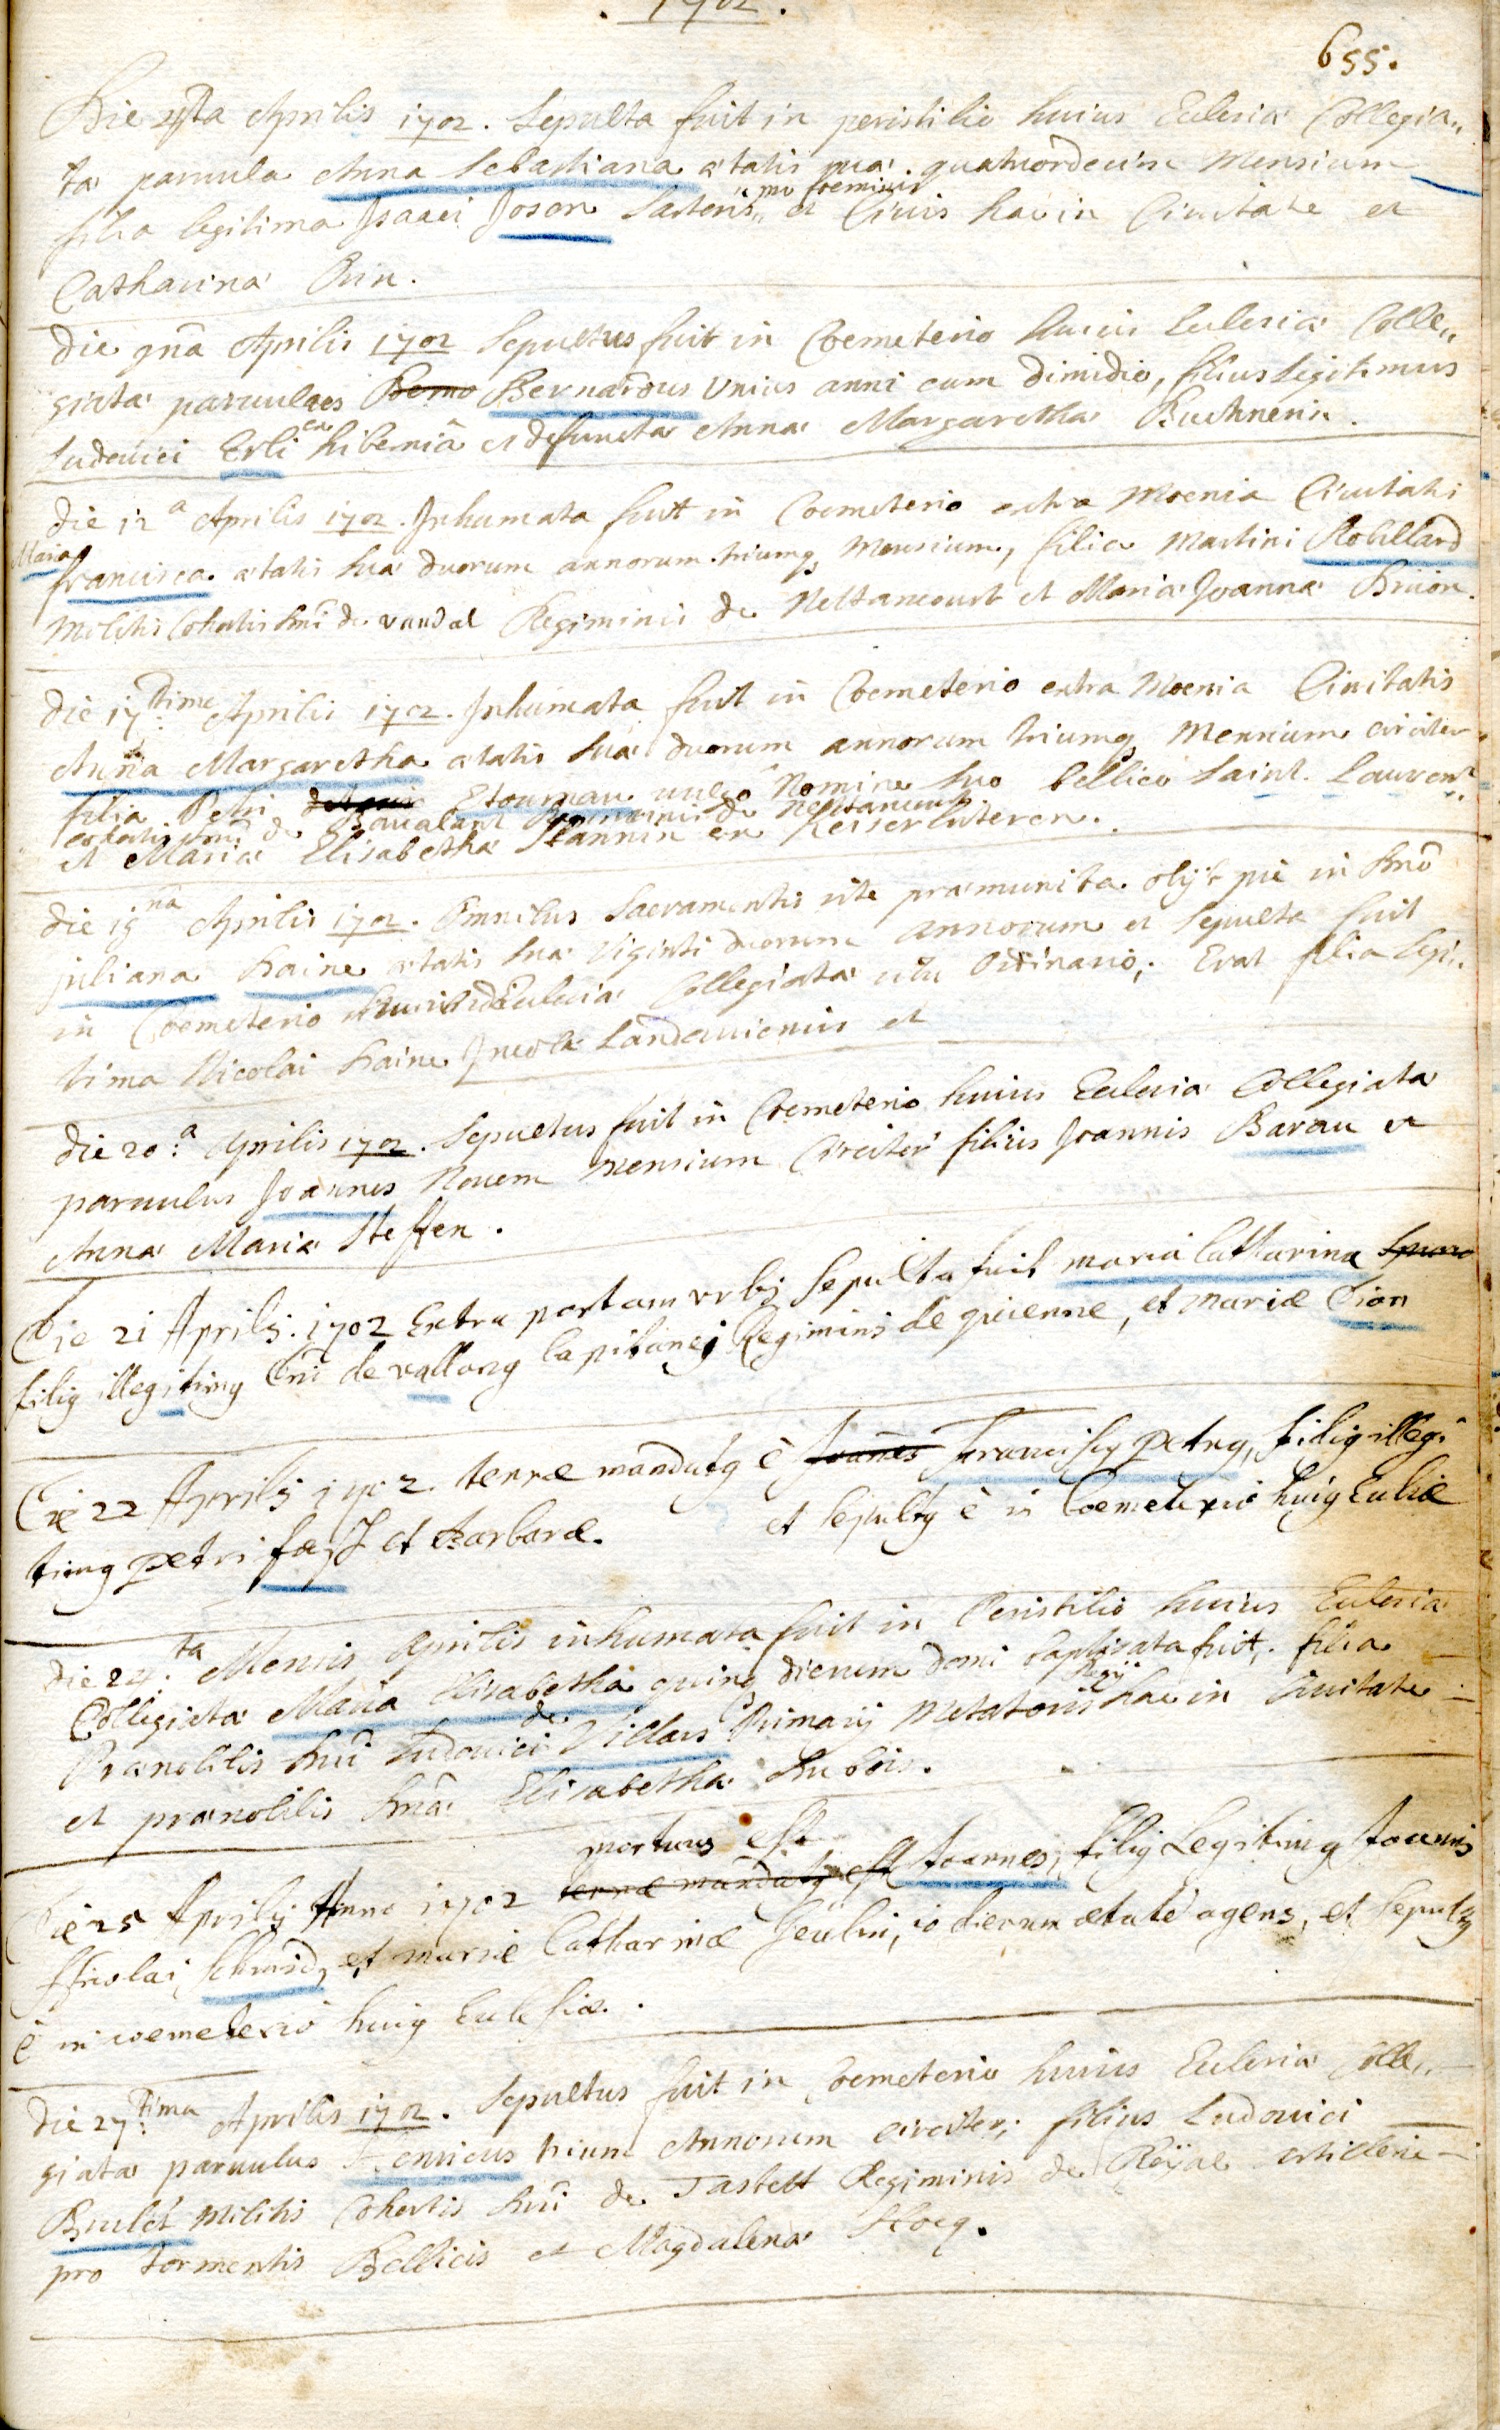 . 1702 .
655.
Die 4ta Aprilis 1702. Sepulta fuit in peristilio huius Ecclesiæ Collegia„
tæ paruula Anna Sebastiana ætatis suæ quatuordecim Mensium
filia legitima Isaaci Joson Sartoris „ pro foeminis „ et Ciuis hac in Ciuitate et
Catharinæ
die 9na Aprilis 1702 Sepultus fuit in Coemeterio huius Ecclesiæ Colle„
giatæ paruulus Bernardus Unius anni cum dimidio, filius Legitimus
Ludouici Erli ex hibernia et defunctæ Annæ Margarethæ
die 12a Aprilis 1702. Inhumata fuit in Coemeterio extra Moenia Ciuitatis
Maria
francisca ætatis suæ duorum annorum triumq Mensium, filia Martini Robillard
Militis Cohortis Dni de vaudal Regiminis de Nettancourt et Mariæ Joannæ Brüon.
die 17tima Aprilis 1702. Inhumata fuit in Coemeterio extra Moenia Ciuitatis
Anna Margaretha ætatis suæ duorum annorum triumq Mensium circiter
filia Petri Etournau uulgo Nomine suo bellico Saint. Laurent
cohortis Dni de Regiminis de Nettancourt
et Mariæ Elisabethæ Jeannin ex Keiserluteren.
die 19na Aprilis 1702. Omnibus Sacramentis rite præmunita obijt pie in Dno
juliana Haine ætatis suæ Viginti duorum annorum et Sepulta fuit
in Coemeterio huius Ecclesiæ Collegiatæ ritu Ordinario; Erat filia legi„
tima Nicolai Haine Incolæ Landauiensis et
die 20:a Aprilis 1702. Sepultus fuit in Coemeterio huius Ecclesiæ Collegiatæ
paruulus Joannes Nouem Mensium Circiter filius Joannis Barau et
Annæ Mariæ Steffen.
Die 21 Aprilis 1702 Extra portam urbis Sepulta fuit maria Catharina
filia illegitima Dni de vallong Capitanej Regiminis de guienne, et mariæ Dion
Die 22 Aprilis 1702 terræ mandatus e Joannes Franciscus petrus, filius illegi
timus petri et Barbaræ. et sepultus e in Coemeterio huius Eccliæ
die 24:ta Mensis Aprilis inhumata fuit in Peristilio huius Ecclesiæ
Collegiatæ Maria Elisabetha quinq dierum domi baptizata fuit, filia
Prænobilis Dni Ludouici de Villars Primarij Metatoris Regij hac in Ciuitate
et prænobilis Dnæ Elisabethæ Dubois.
mortuus est
Die 25 Aprilis Anno 1702 terræ mandatus est Joannes, filius Legitimus Joannis
Nicolai Schmid, et mariæ Catharinæ 10 dierum ætate agens, et Sepultus
e in coemeterio huius Ecclesiæ.
die 27:tima Aprilis 1702. Sepultus fuit in Coemeterio huius Ecclesiæ Colle„
giatæ paruulus Henricus trium Annorum circiter, filius Ludouici
Brulét Militis Cohortis Dni de Tastett Regiminis de Roÿal artillerie
pro tormentis Bellicis et Magdalenæ